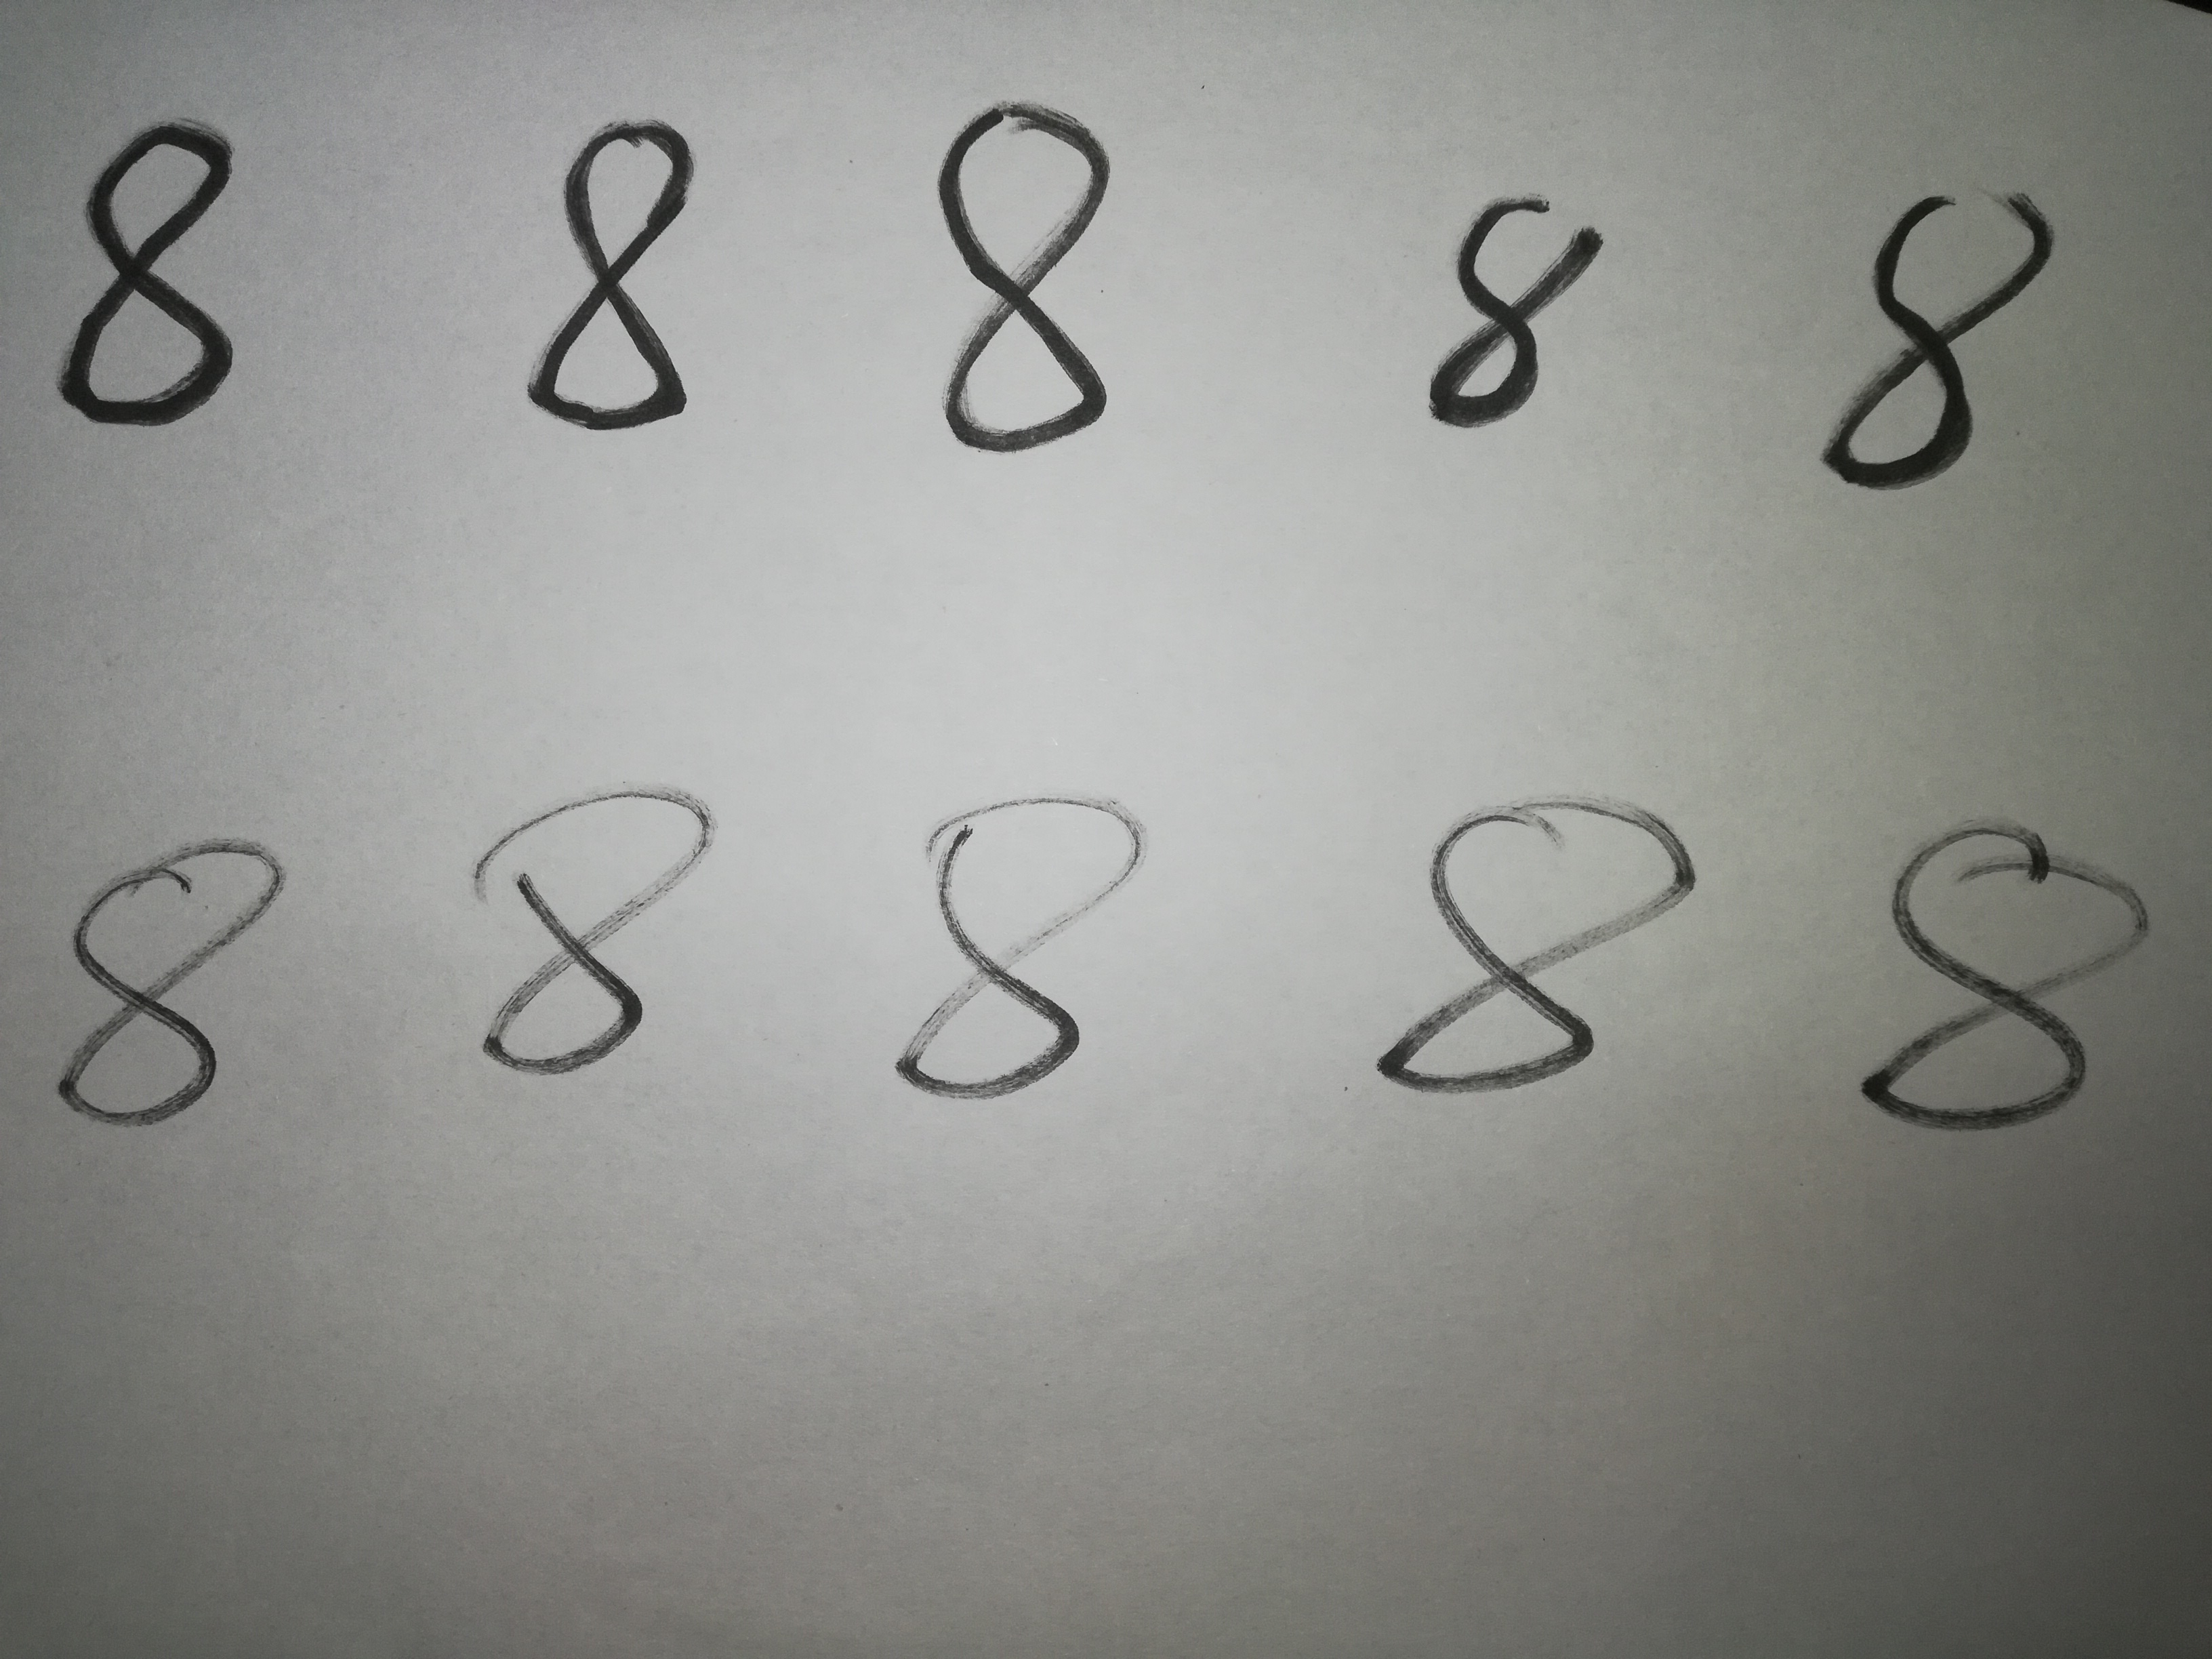 8 8 8 8 8
8 8 8 8 8